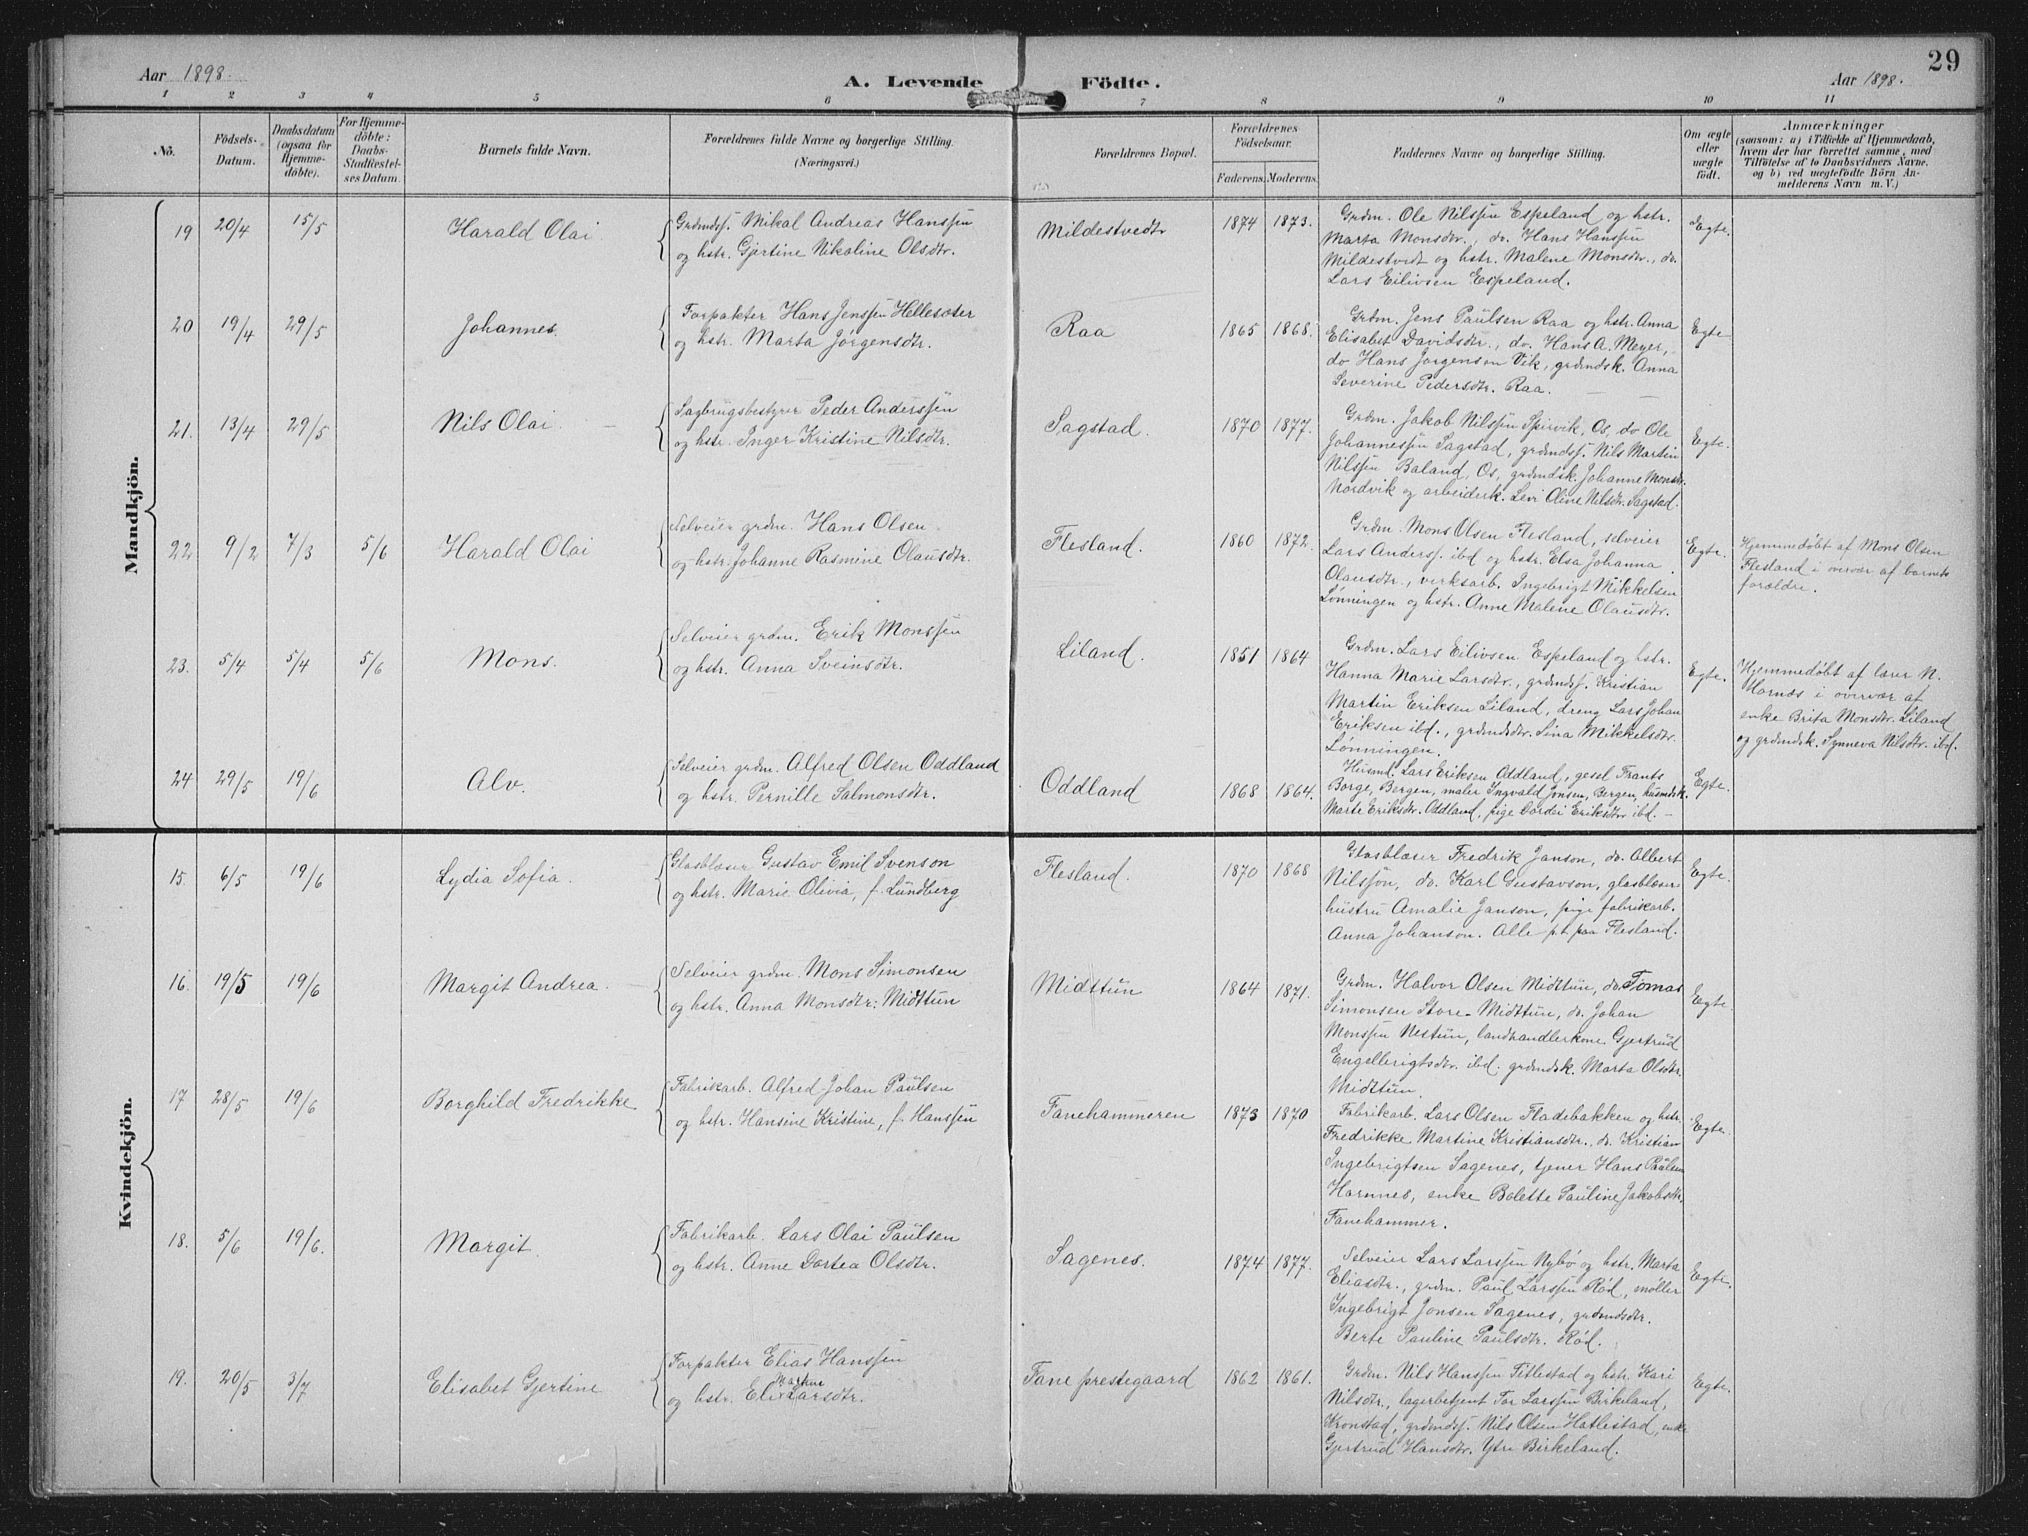 Aar 1898.
A. Levende Födte.
Aar 1898.
29
1 2 3 4 5 6 7 8 9 10 11
No.
Födsels-
Datum.
Daabsdatum
(ogsaa for
Hjemme-
döbte).
For Hjemme-
döbte:
Daabs-
Stadfæstel-
ses Datum.
Barnets fulde Navn.
Forældrenes fulde Navne og borgerlige Stilling.
(Næringsvei.)
Forældrenes Bopæl.
Forældrenes
Födselsaar.
Faderens. Moderens.
Faddernes Navne og borgerlige Stilling.
Om ægte
eller
uægte
födt.
Anmærkninger
(saasom: a) i Tilfælde af Hjemmedaab,
hvem der har forrettet samme, med
Tilföielse af to Daabsvidners Navne,
og b) ved uægtefödte Börn An-
melderens Navn m. V.)
Mandkjön.
19 20/4 15/5 Harald Olai
Grdmdss. Mikal Andreas Hanssen
og hstr. Gjertine Nikoline Olsdtr.
Mildestvedt 1874 1873.
Grdm. Ole Nilssen Espeland og hstr.
Marta Monsdtr., do. Hans Hanssen
Mildestvedt og hstr. Malene Monsdtr., do.
Lars Eilivsen Espeland.
Egte.
20 19/4 29/5 Johannes.
Forpakter Hans Jenssen Hellesæter
og hstr. Marta Jørgensdtr.
Raa 1865 1868.
Grdm. Jens Paulsen Raa og hstr. Anna
Elisabet Davidsdtr., do. Hans A. Meyer,
do Hans Jørgenson Vik, grdmdsk. Anna
Severine Pedersdtr. Raa.
Egte
21. 13/4 29/5 Nils Olai.
Sagbrugsbestyrer Peder Anderssen
og hstr. Inger Kristine Nilsdtr.
Sagstad. 1870 1877.
Grdm. Jakob Nilssen Spirvik, Os, do Ole
Johannessen Sagstad, grdmdss. Nils Martin
Nilssen Baland, Os, grdmdsk. Johanne Monsdtr.
Nordvik og arbeiderk. Levi Oline Nilsdtr. Sagstad.
Egte.
22 9/2 7/3 5/6 Harald Olai
Selveier grdm. Hans Olsen
og hstr. Johanne Rasmine Olausdtr.
Flesland. 1860 1872.
Grdm. Mons Olsen Flesland, selveier
Lars Anderss. ibd og hstr. Elsa Johanna
Olausdtr., verksarb. Ingebrigt Mikkelsen
Lønningen og hstr. Anne Malene Olausdtr.
Egte.
Hjemmedøbt af Mons Olsen
Flesland i overvær af barnets
forældre.
23. 5/4 5/4 5/6 Mons.
Selveier grdm. Erik Monssen
og hstr. Anna Sveinsdtr.
Liland. 1851 1864
Grdm. Lars Eilivsen Espeland og hstr.
Hanna Marie Larsdtr., grdmdss. Kristian
Martin Eriksen Liland, dreng Lars Johan
Eriksen ibd., grdmdsdtr. Sina Mikkelsdtr.
Lønningen.
Egte.
Hjemmedøbt af lærer N.
Hornæs i overvær af
enke Brita Monsdtr. Liland
og grdmdsk. Synneva Nilsdtr. ibd.
24 29/5 19/6 Alv.
Selveier grdm. Alfred Olsen Oddland
og hstr. Pernille Salmonsdtr.
Oddland 1868 1864.
Husmd. Lars Eriksen Oddland, gesel Frants
Borge, Bergen, maler Ingvald Jonsen, Bergen, husmdsk.
Marte Eriksdtr. Oddland, pige Eriksdtr ibd. –
Egte.
Kvindekjön.
15. 6/5 19/6 Lydia Sofia.
Glasblæser Gustav Emil Svenson
og hstr. Marie Olivia, f. Lundberg
Flesland. 1870 1868
Glasblæser Fredrik Janson, do. Albert
Nilssøn, do. Karl Gustavson, glasblæser-
hustru Amalie Janson, pige fabrikarb.
Anna Johanson. Alle p.t. paa Flesland.
Egte.
16. 19/5 19/6 Margit Andrea.
Selveier grdm. Mons Simonsen
og hstr. Anna Monsdtr. Midttun
Midttun 1864 1871.
Grdm. Halvor Olsen Midttun, do. Tomas
Simonsen Store-Midttun, do. Johan
Monssen Nestun, landhandlerkone Gjertrud
Engelbrigtsdtr. ibd. grdmdsk. Marta Olsdtr.
Midttun.
Egte
17 28/5 19/6 Borghild Fredrikke
Fabrikarb. Alfred Johan Paulsen
og hstr. Hansine Kristine, f. Hanssen
Fanehammeren 1873 1870
Fabrikarb. Lars Olsen Fladebakken og hstr.
Fredrikke Martine Kristiansdtr., do. Kristian
Ingebrigtsen Sagenes, tjener Hans Paulsen
Hamnes, enke Bolette Pauline Jakobsdtr.
Fanehammer.
Egte.
18. 5/6 19/6. Margit.
Fabrikarb. Lars Olai Paulsen
og hstr. Anne Dortea Olsdtr.
Sagenes. 1874 1877.
Selveier Lars Larssen Nybø og hstr. Marta
Eliasdtr., grdm. Paul Larssen Rød, møller
Ingebrigt Jonsen Sagenes, grdmdsdtr.
Berte Pauline Paulsdtr. Rød.
Egte.
19. 20/5 3/7 Elisabet Gjertine
Forpakter Elias Hanssen
og hstr. Eli Larsdtr.
Fane prestegaard 1862 1861.
Grdm. Nils Hanssen Titlestad og hstr. Kari
Nilsdtr., lagerbetjent Tor Larssen Birkeland,
Kronstad, grdmdss. Nils Olsen Hatlestad, enke
Gjertrud Hansdtr. Ytre Birkeland.
Egte.